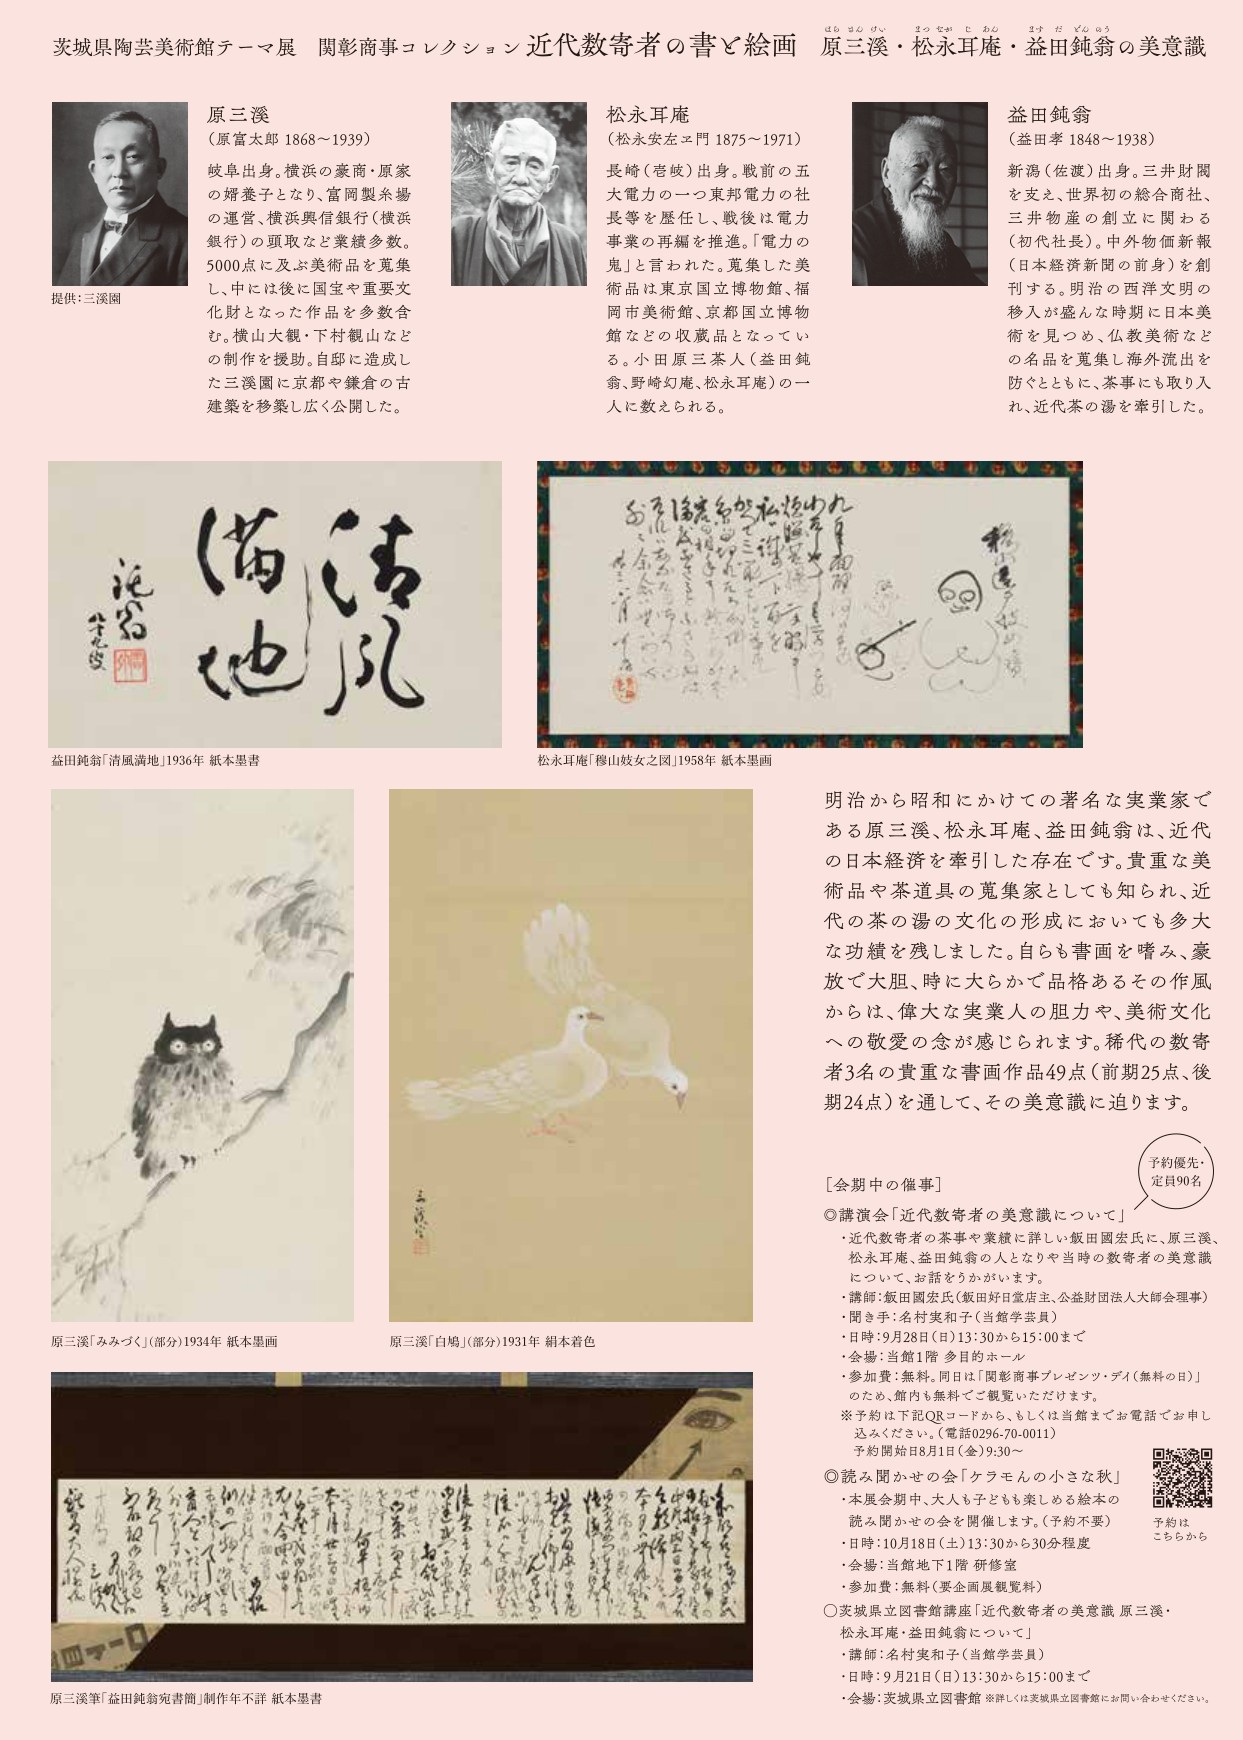 茨城県陶芸美術館テーマ展　関彰商事コレクション 近代数寄者の書と絵画　原三溪・松永耳庵・益田鈍翁の美意識
はら さん けい　まつ なが じ あん　ます だ どん のう
提供:三溪園
原三溪
（原富太郎 1868〜1939）
岐阜出身。横浜の豪商・原家
の婿養子となり、富岡製糸場
の運営、横浜興信銀行（横浜
銀行）の頭取など業績多数。
5000点に及ぶ美術品を蒐集
し、中には後に国宝や重要文
化財となった作品を多数含
む。横山大観・下村観山など
の制作を援助。自邸に造成し
た三溪園に京都や鎌倉の古
建築を移築し広く公開した。
松永耳庵
（松永安左ヱ門 1875〜1971）
長崎（壱岐）出身。戦前の五
大電力の一つ東邦電力の社
長等を歴任し、戦後は電力
事業の再編を推進。「電力の
鬼」と言われた。蒐集した美
術品は東京国立博物館、福
岡市美術館、京都国立博物
館などの収蔵品となってい
る。小田原三茶人（益田鈍
翁、野崎幻庵、松永耳庵）の一
人に数えられる。
益田鈍翁
（益田孝 1848〜1938）
新潟（佐渡）出身。三井財閥
を支え、世界初の総合商社、
三井物産の創立に関わる
（初代社長）。中外物価新報
（日本経済新聞の前身）を創
刊する。明治の西洋文明の
移入が盛んな時期に日本美
術を見つめ、仏教美術など
の名品を蒐集し海外流出を
防ぐとともに、茶事にも取り入
れ、近代茶の湯を牽引した。
清風
満地
鈍翁
八十九叟
益田鈍翁「清風満地」1936年 紙本墨書
松永耳庵「穆山妓女之図」1958年 紙本墨画
原三溪「みみづく」（部分）1934年 紙本墨画
原三溪「白鳩」（部分）1931年 絹本着色
原三溪筆「益田鈍翁宛書簡」制作年不詳 紙本墨書
明治から昭和にかけての著名な実業家で
ある原三溪、松永耳庵、益田鈍翁は、近代
の日本経済を牽引した存在です。貴重な美
術品や茶道具の蒐集家としても知られ、近
代の茶の湯の文化の形成においても多大
な功績を残しました。自らも書画を嗜み、豪
放で大胆、時に大らかで品格あるその作風
からは、偉大な実業人の胆力や、美術文化
への敬愛の念が感じられます。稀代の数寄
者3名の貴重な書画作品49点（前期25点、後
期24点）を通して、その美意識に迫ります。
予約優先・
定員90名
［会期中の催事］
◎講演会「近代数寄者の美意識について」
・近代数寄者の茶事や業績に詳しい飯田國宏氏に、原三溪、
松永耳庵、益田鈍翁の人となりや当時の数寄者の美意識
について、お話をうかがいます。
・講師:飯田國宏氏（飯田好日堂店主、公益財団法人大師会理事）
・聞き手:名村実和子（当館学芸員）
・日時:9月28日（日）13:30から15:00まで
・会場:当館1階 多目的ホール
・参加費:無料。同日は「関彰商事プレゼンツ・デイ（無料の日）」
のため、館内も無料でご観覧いただけます。
※予約は下記QRコードから、もしくは当館までお電話でお申し
込みください。（電話0296-70-0011）
予約開始日8月1日（金）9:30〜
◎読み聞かせの会「ケラモんの小さな秋」
・本展会期中、大人も子どもも楽しめる絵本の
読み聞かせの会を開催します。（予約不要）
・日時:10月18日（土）13:30から30分程度
・会場:当館地下1階 研修室
・参加費:無料（要企画展観覧料）
予約は
こちらから
〇茨城県立図書館講座「近代数寄者の美意識 原三溪・
松永耳庵・益田鈍翁について」
・講師:名村実和子（当館学芸員）
・日時:9月21日（日）13:30から15:00まで
・会場:茨城県立図書館 ※詳しくは茨城県立図書館にお問い合わせください。